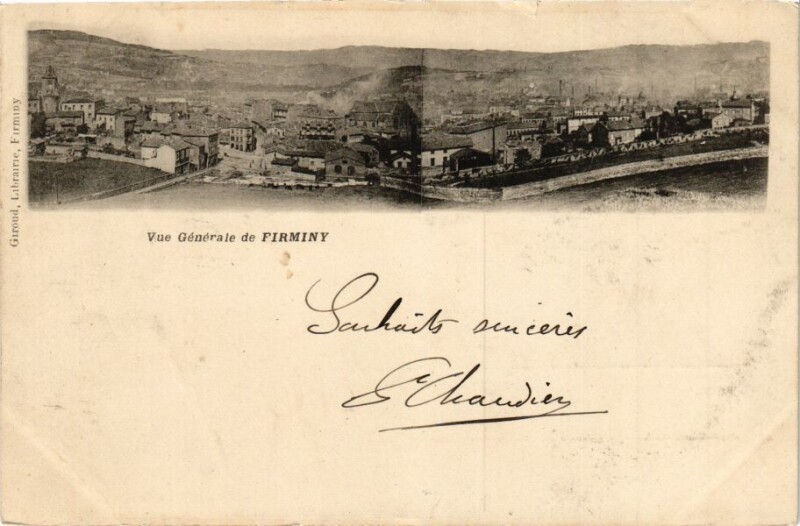 Giroud, Librairie, Firminy
Vue Générale de FIRMINY
Souhaits sincères